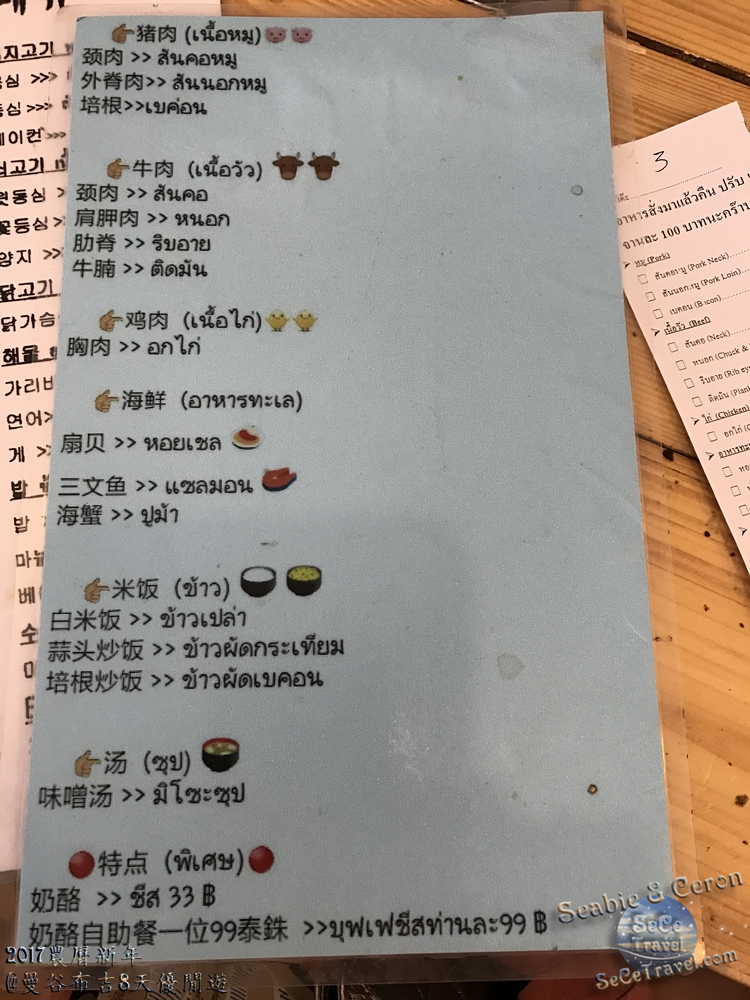 猪肉 (เนื้อหมู)
颈肉 >> สันคอหมู
外脊肉>> สันนอกหมู
培根>>เบค่อน
牛肉 (เนื้อวัว)
颈肉 >> สันคอ
肩胛肉 >> หนอก
肋脊 >> ริบอาย
牛腩 >> ติดมัน
鸡肉 (เนื้อไก่)
胸肉 >> อกไก่
海鲜 (อาหารทะเล)
扇贝 >> หอยเชล
三文鱼 >> แซลมอน
海蟹 >> ปูม้า
米饭 (ข้าว)
白米饭 >> ข้าวเปล่า
蒜头炒饭 >> ข้าวผัดกระเทียม
培根炒饭 >> ข้าวผัดเบคอน
汤 (ซุป)
味噌汤 >> มิโซะซุป
特点 (พิเศษ)
奶酪 >> ชีส 33 ฿
奶酪自助餐一位99泰銖 >>บุฟเฟ่ชีสท่านละ99 ฿
지고기
등심 >>>
베이컨 >>>
꽃등심 >
양지 >>
닭고기
닭가슴
해물
가리비
연어>
게 >
밥
3
อาหารสั่งมาแล้วคืน ปรับ
จานละ 100 บาทนะคร๊าบ
หมู (Pork)
สันคอหมู (Pork Neck)
สันนอกหมู (Pork Loin)
เบคอน (Bacon)
เนื้อวัว (Beef)
สันคอ (Neck)
หนอก (Chuck &
ริบอาย (Rib eye
ติดมัน (Plan
ไก่ (Chicken)
อกไก่
อาหารทะ
Seabie & Ceron
SeCe
Travel
SeCeTravel.com
2017農曆新年
@曼谷布吉8天優閒遊